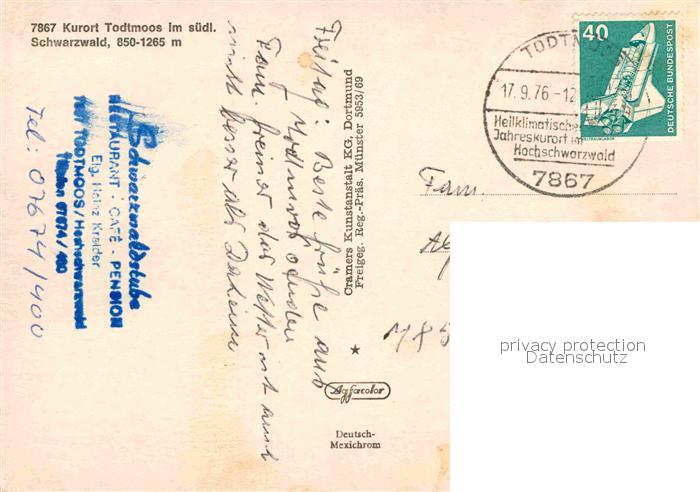 7867 Kurort Todtmoos im südl.
Schwarzwald, 850-1265 m
Schwarzwaldstube
RESTAURANT - CAFÉ - PENSION
Eig. Heinz Kreider
7867 TODTMOOS / Hochschwarzwald
Telefon 07674 / 400
Tel: 07674/400
Freitag: Beste Grüße aus
Todtmoos senden
Fam.
das Wetter ist auch
nicht besser als Daheim.
Cramers Kunstanstalt KG. Dortmund
Freigeg. Reg.-Präs. Münster 5953/69
Agfacolor
Deutsch-
Mexichrom
TODTMOOS
17.9.76-12
Heilklimatischer
Jahreskurort im
Hochschwarzwald
7867
40
DEUTSCHE BUNDESPOST
WELTRAUMLABOR
Fam.
M 85
privacy protection
Datenschutz